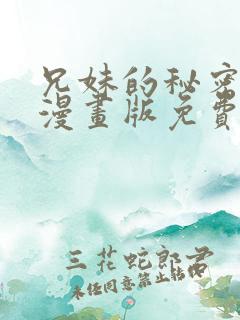 兄妹的秘密
漫畫版免費
三花蛇郎君
未经同意禁止转载